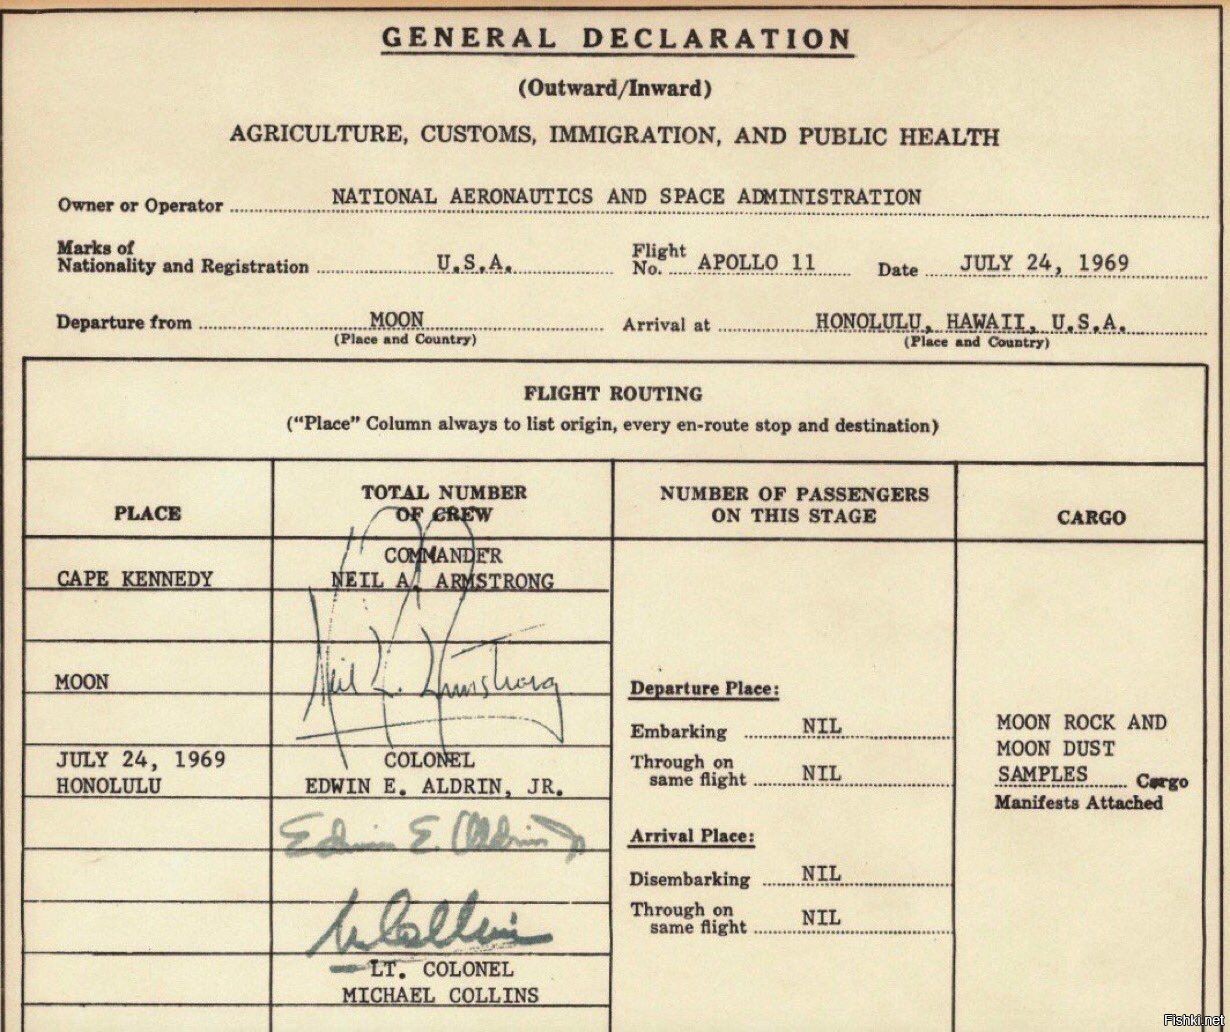 GENERAL DECLARATION
(Outward/Inward)
AGRICULTURE, CUSTOMS, IMMIGRATION, AND PUBLIC HEALTH
Owner or Operator NATIONAL AERONAUTICS AND SPACE ADMINISTRATION
Marks of
Nationality and Registration U.S.A.
Flight
No. APOLLO 11
Date JULY 24, 1969
Departure from MOON
(Place and Country)
Arrival at HONOLULU, HAWAII, U.S.A.
(Place and Country)
FLIGHT ROUTING
("Place" Column always to list origin, every en-route stop and destination)
PLACE
TOTAL NUMBER
OF CREW
NUMBER OF PASSENGERS
ON THIS STAGE
CARGO
CAPE KENNEDY
MOON
JULY 24, 1969
HONOLULU
COMMANDER
NEIL A. ARMSTRONG
Neil A. Armstrong
COLONEL
EDWIN E. ALDRIN, JR.
Edwin E. Aldrin Jr
M Collins
LT. COLONEL
MICHAEL COLLINS
Departure Place:
Embarking NIL
Through on
same flight NIL
Arrival Place:
Disembarking NIL
Through on
same flight NIL
MOON ROCK AND
MOON DUST
SAMPLES Cargo
Manifests Attached
Fishki.net